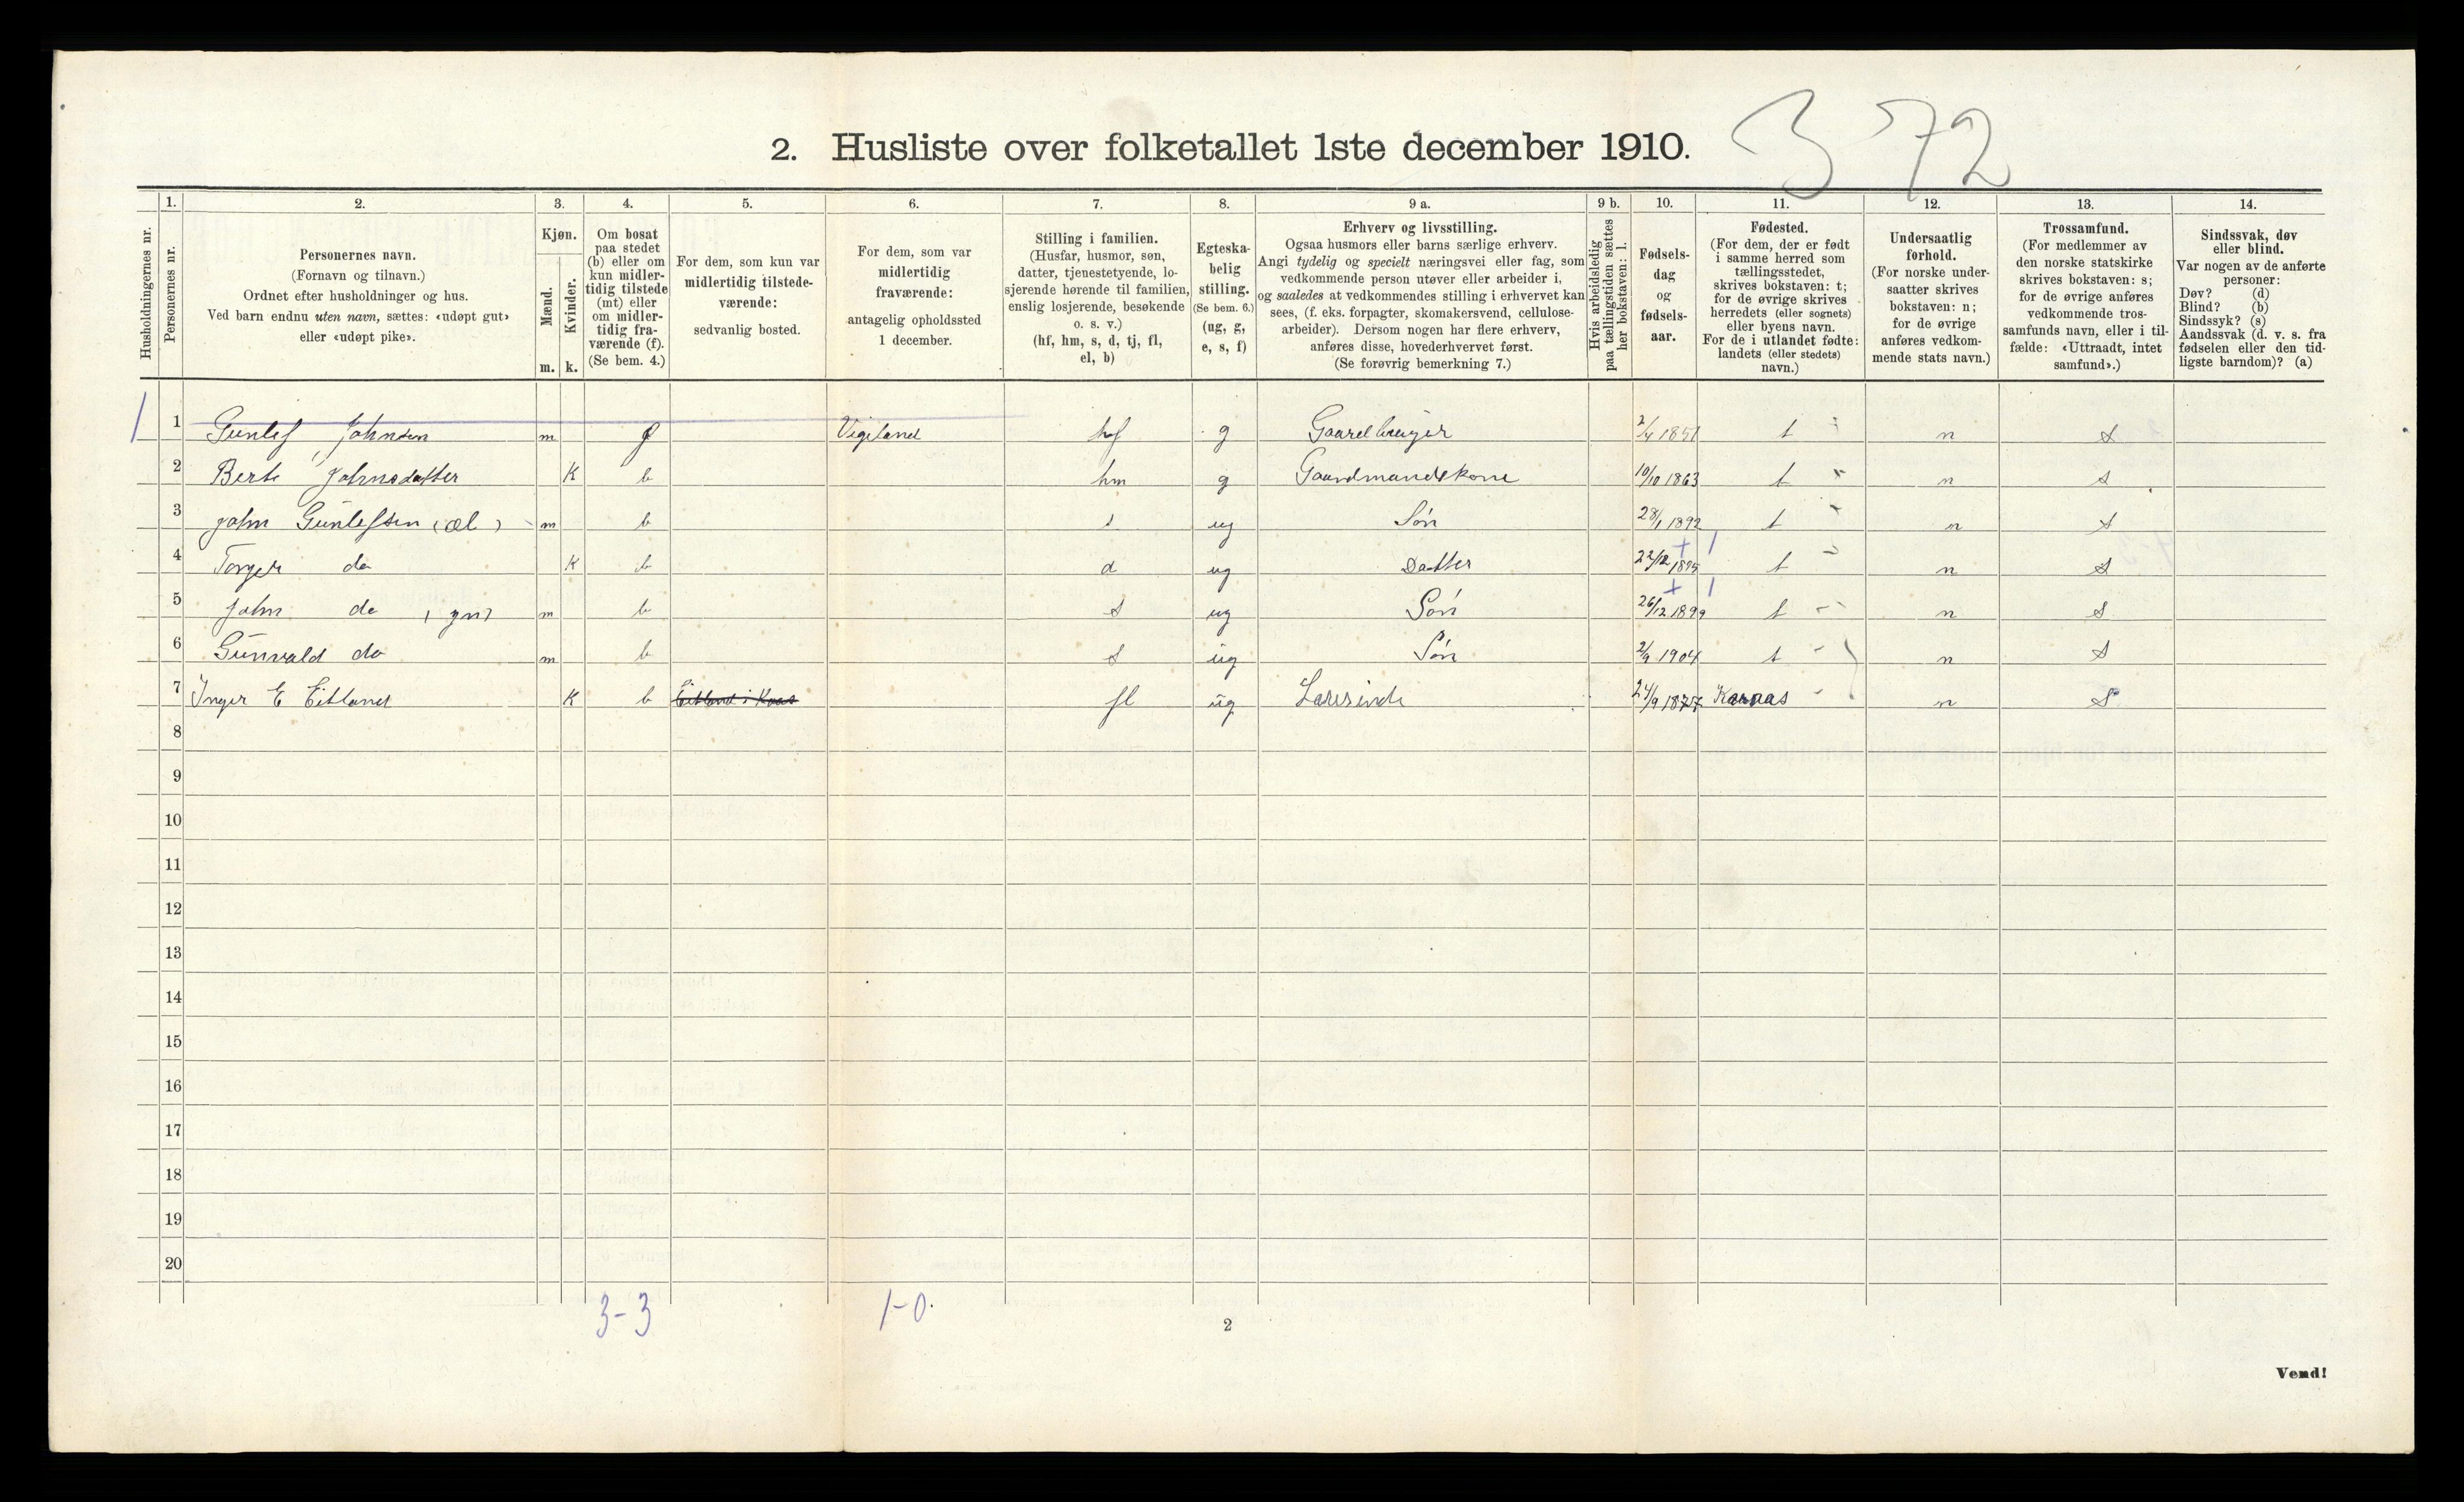 2. Husliste over folketallet 1ste december 1910.
3 72
Husholdningernes nr.
1.
Personernes nr.
2.
Personernes navn.
(Fornavn og tilnavn.)
Ordnet efter husholdninger og hus.
Ved barn endnu uten navn, sættes: «udøpt gut»
eller «udøpt pike».
3.
Kjøn.
Mænd.
Kvinder.
m. k.
4.
Om bosat
paa stedet
(b) eller om
kun midler-
tidig tilstede
(mt) eller
om midler-
tidig fra-
værende (f).
(Se bem. 4.)
5.
For dem, som kun var
midlertidig tilstede-
værende:
sedvanlig bosted.
6.
For dem, som var
midlertidig
fraværende:
antagelig opholdssted
1 december.
7.
Stilling i familien.
(Husfar, husmor, søn,
datter, tjenestetyende, lo-
sjerende hørende til familien,
enslig losjerende, besøkende
o. s. v.)
(hf, hm, s, d, tj, fl,
el, b)
8.
Egteska-
belig
stilling.
(Se bem. 6.)
(ug, g,
e, s, f)
9 a.
Erhverv og livsstilling.
Ogsaa husmors eller barns særlige erhverv.
Angi tydelig og specielt næringsvei eller fag, som
vedkommende person utøver eller arbeider i,
og saaledes at vedkommendes stilling i erhvervet kan
sees, (f. eks. forpagter, skomakersvend, cellulose-
arbeider). Dersom nogen har flere erhverv,
anføres disse, hovederhvervet først.
(Se forøvrig bemerkning 7.)
9 b.
Hvis arbeidsledig
paa tællingstiden sættes
her bokstaven: l.
10.
Fødsels-
dag
og
fødsels-
aar.
11.
Fødested.
(For dem, der er født
i samme herred som
tællingsstedet,
skrives bokstaven: t;
for de øvrige skrives
herredets (eller sognets)
eller byens navn.
For de i utlandet fødte:
landets (eller stedets)
navn.)
12.
Undersaatlig
forhold.
(For norske under-
saatter skrives
bokstaven: n;
for de øvrige
anføres vedkom-
mende stats navn.)
13.
Trossamfund.
(For medlemmer av
den norske statskirke
skrives bokstaven: s;
for de øvrige anføres
vedkommende tros-
samfunds navn, eller i til-
fælde: «Uttraadt, intet
samfund».)
14.
Sindssvak, døv
eller blind.
Var nogen av de anførte
personer:
Døv? (d)
Blind? (b)
Sindssyk? (s)
Aandssvak (d. v. s. fra
fødselen eller den tid-
ligste barndom)? (a)
1 1 Gunlef Johnsen m f Vigeland hf g Gaardbruger 2/4 1851 t n s
2 Berte Johnsdatter K b hm g Gaardmandskone 10/10 1863 t n s
3 John Gunlefsen (æl) m b s ug Søn 28/1 1892 t n s
4 Torger do K b d ug Datter 22/12 t n s
5 John do (yn) m b s ug Søn 26/12 1899 t n s
6 Gunvald do m b s ug Søn 2/9 1904 t n s
7 Inger E Eitland K b Eitland i Kvas fl ug Lærerinde 24/9 1877 n S
8
9
10
11
12
13
14
15
16
17
18
19
20
3-3 1-0
2
Vend!